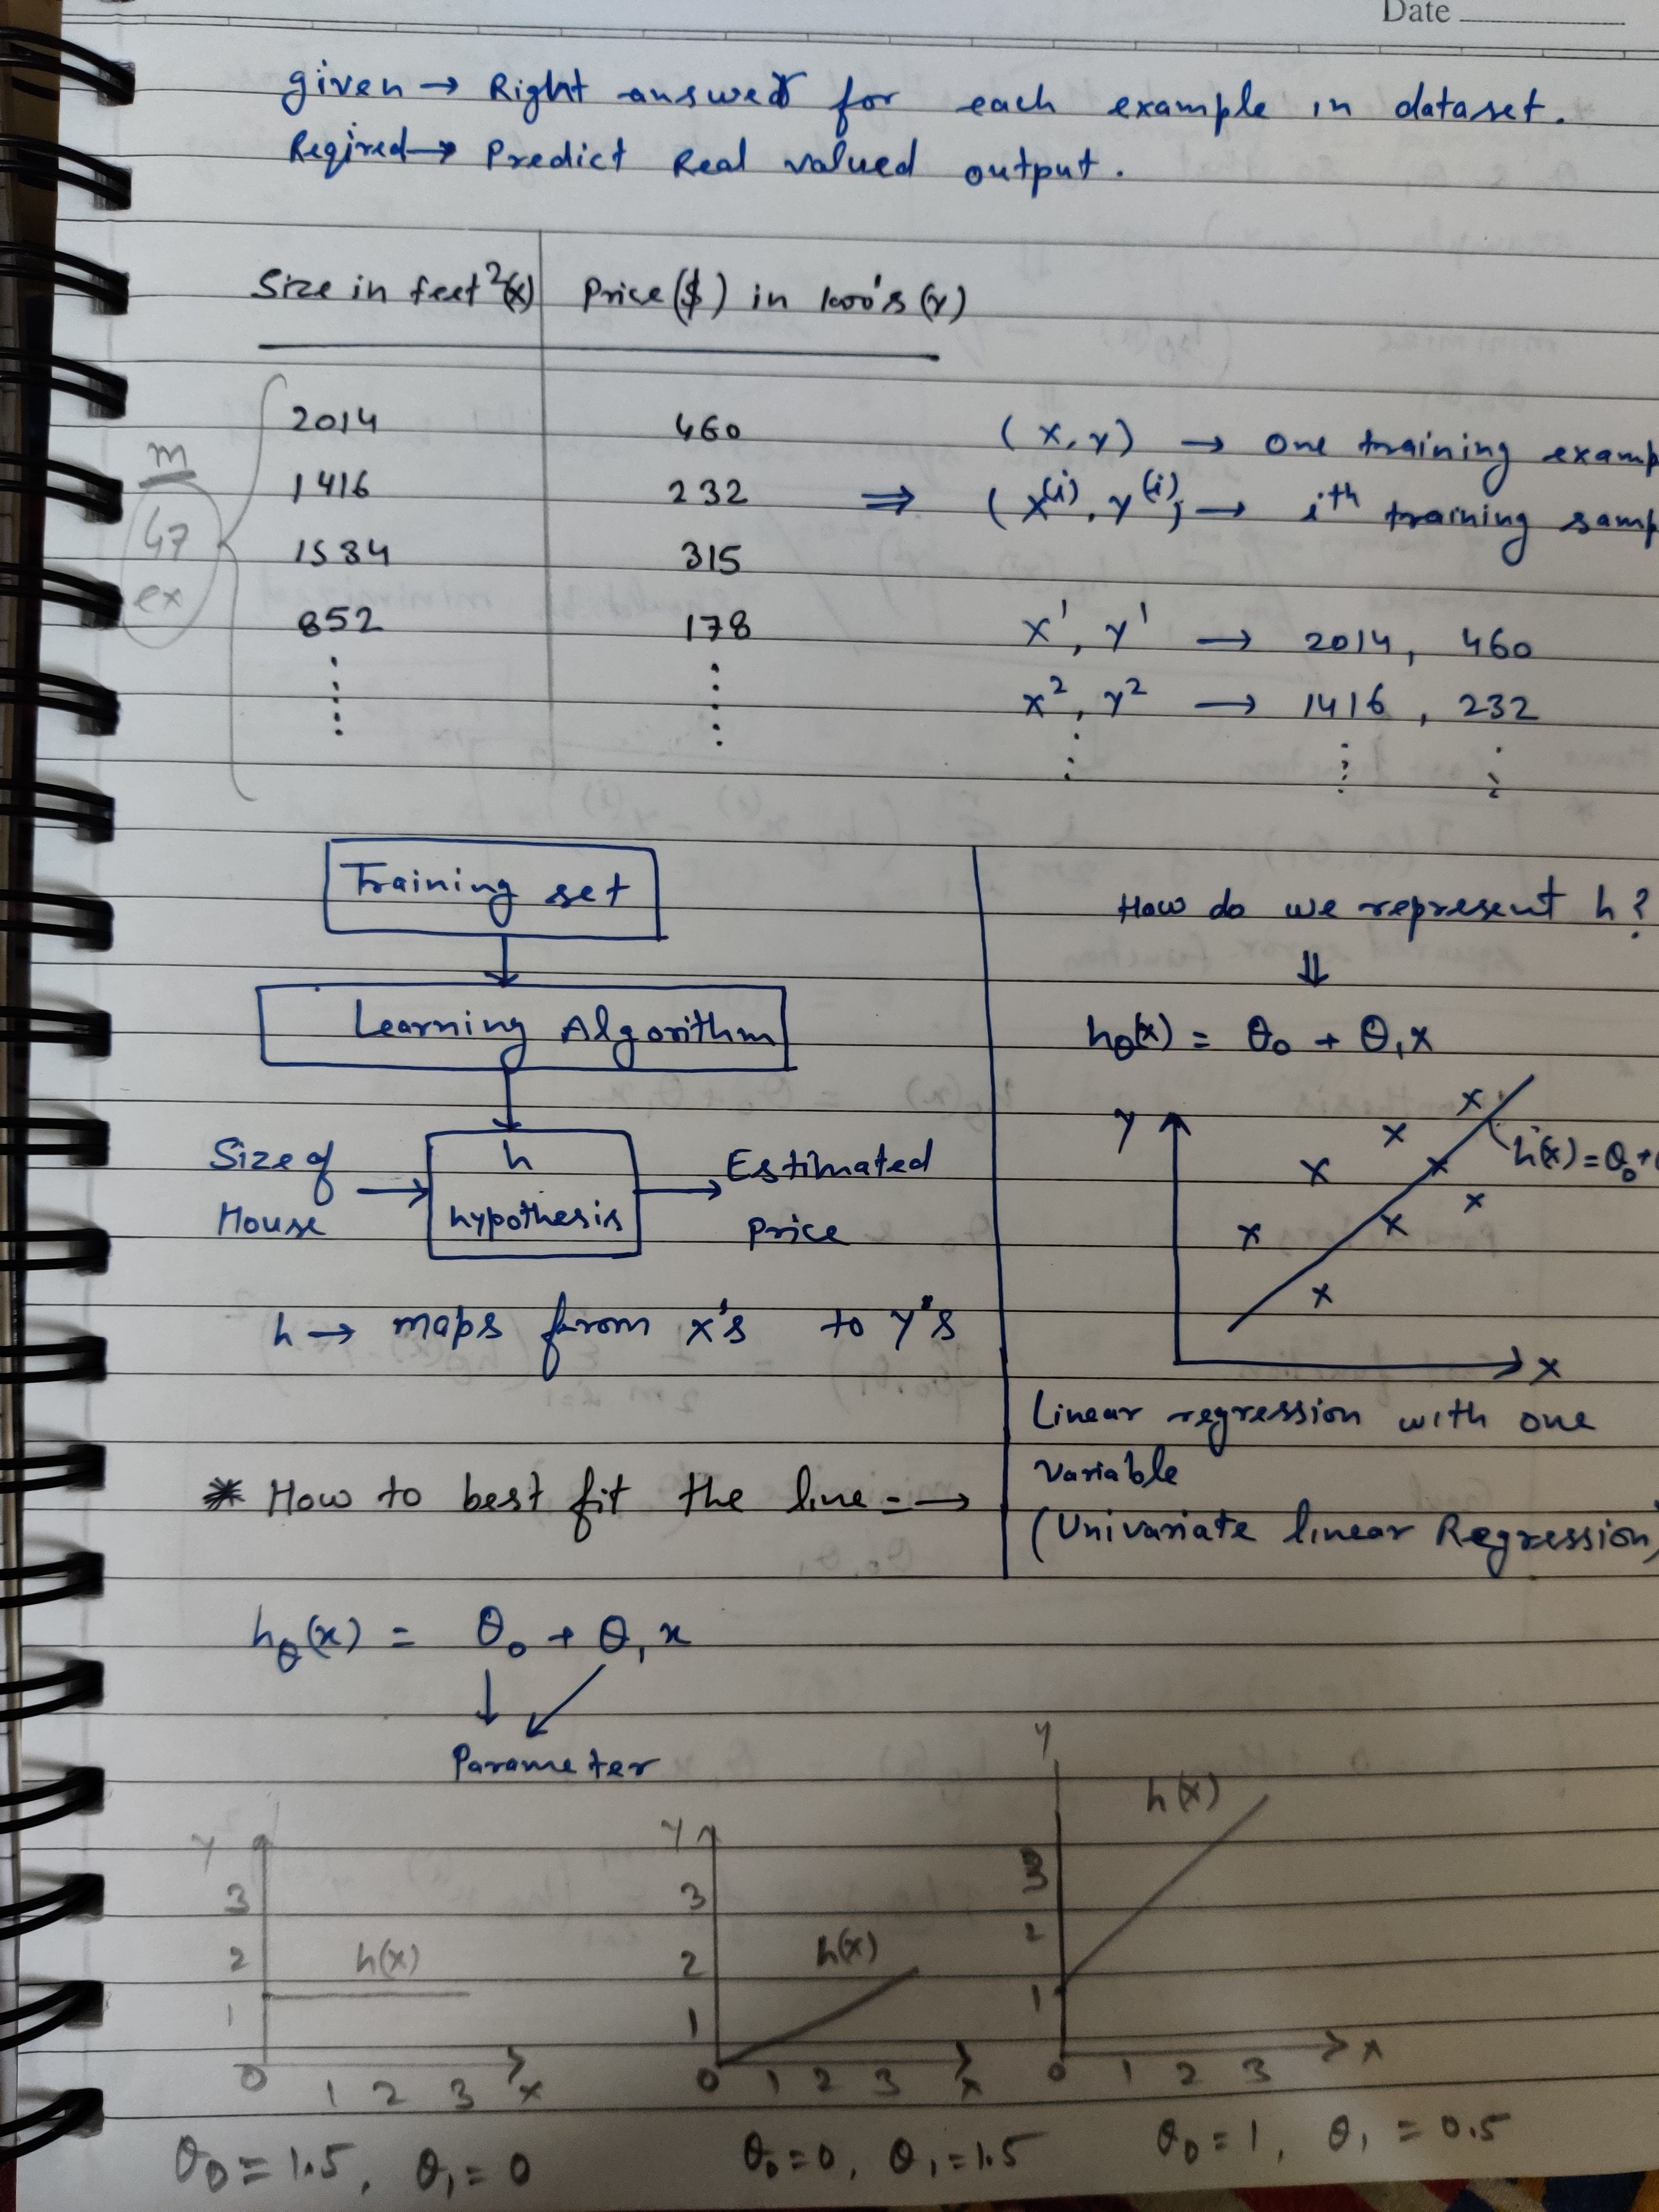 Date
given → Right answer for each example in dataset.
Reqired → Predict Real valued output.
Size in feet²(x) Price($) in 1000's (y)
m
47
ex
2014 460
1416 232
1534 315
852 178
⇒
(x, y) → one training examp
(x⁽ⁱ⁾, y⁽ⁱ⁾) → iᵗʰ training samp
x¹, y¹ → 2014, 460
x², y² → 1416, 232
Training set
Learning Algorithm
Size of
House
h
hypothesis
Estimated
price
h → maps from x's to y's
How do we represent h?
⇓
hθ(x) = θ₀ + θ₁x
y
x
h(x) = θ₀ +
Linear regression with one
variable
(Univariate linear Regression)
* How to best fit the line :→
hθ(x) = θ₀ + θ₁x
Parameter
y
3
2
1
0 1 2 3 x
h(x)
θ₀ = 1.5, θ₁ = 0
y
3
2
1
0 1 2 3 x
h(x)
θ₀ = 0, θ₁ = 1.5
y
3
2
1
0 1 2 3 x
h(x)
θ₀ = 1, θ₁ = 0.5